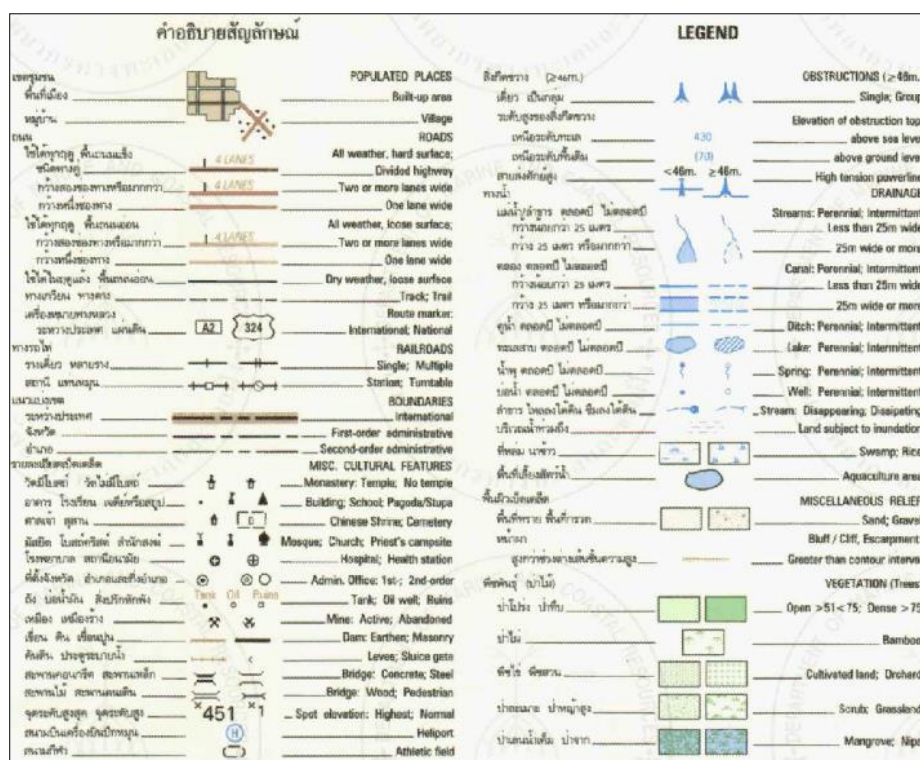 คำอธิบายสัญลักษณ์
LEGEND
เขตชุมชน POPULATED PLACES
พื้นที่เมือง Built-up area
หมู่บ้าน Village
ถนน ROADS
ใช้ได้ทุกฤดู พื้นถนนแข็ง All weather, hard surface;
ชนิดทางคู่ 4 LANES Divided highway
กว้างสองช่องทางหรือมากกว่า 4 LANES Two or more lanes wide
กว้างหนึ่งช่องทาง One lane wide
ใช้ได้ทุกฤดู พื้นถนนอ่อน All weather, loose surface;
กว้างสองช่องทางหรือมากกว่า 4 LANES Two or more lanes wide
กว้างหนึ่งช่องทาง One lane wide
ใช้ได้ในฤดูแล้ง พื้นถนนอ่อน Dry weather, loose surface
ทางเกวียน ทางคน Track; Trail
เครื่องหมายทางหลวง Route marker:
ระหว่างประเทศ แผ่นดิน A2 324 International; National
ทางรถไฟ RAILROADS
รางเดี่ยว หลายราง Single; Multiple
สถานี แทนหมุน Station; Turntable
แนวแบ่งเขต BOUNDARIES
ระหว่างประเทศ International
จังหวัด First-order administrative
อำเภอ Second-order administrative
รายละเอียดเบ็ดเตล็ด MISC. CULTURAL FEATURES
วัดมีโบสถ์ วัดไม่มีโบสถ์ Monastery: Temple; No temple
อาคาร โรงเรียน เจดีย์หรือสถูป Building; School; Pagoda/Stupa
ศาลเจ้า สุสาน Chinese Shrine; Cemetery
มัสยิด โบสถ์คริสต์ สำนักสงฆ์ Mosque; Church; Priest's campsite
โรงพยาบาล สถานีอนามัย Hospital; Health station
ที่ตั้งจังหวัด อำเภอและกิ่งอำเภอ Admin. Office: 1st-; 2nd-order
ถัง บ่อน้ำมัน สิ่งปรักหักพัง Tank Oil Ruins Tank; Oil well; Ruins
เหมือง เหมืองร้าง Mine: Active; Abandoned
เขื่อน ดิน เขื่อนปูน Dam: Earthen; Masonry
คันดิน ประตูระบายน้ำ Levee; Sluice gate
สะพานคอนกรีต สะพานเหล็ก Bridge: Concrete; Steel
สะพานไม้ สะพานคนเดิน Bridge: Wood; Pedestrian
จุดระดับสูงสุด จุดระดับสูง ×451 ×1 Spot elevation: Highest; Normal
สนามบินเครื่องบินปีกหมุน H Heliport
สนามกีฬา Athletic field
สิ่งกีดขวาง (≥46m.) OBSTRUCTIONS (≥46m.
เดี่ยว เป็นกลุ่ม Single; Group
ระดับสูงของสิ่งกีดขวาง Elevation of obstruction top
เหนือระดับทะเล 430 above sea leve
เหนือระดับพื้นดิน (70) above ground leve
<46m. ≥46m.
สายส่งศักย์สูง High tension powerline
ทางน้ำ DRAINAG
แม่น้ำ/ลำธาร ตลอดปี ไม่ตลอดปี Streams: Perennial; Intermittent
กว้างน้อยกว่า 25 เมตร Less than 25m wide
กว้าง 25 เมตร หรือมากกว่า 25m wide or more
คลอง ตลอดปี ไม่ตลอดปี Canal: Perennial; Intermittent
กว้างน้อยกว่า 25 เมตร Less than 25m wide
กว้าง 25 เมตร หรือมากกว่า 25m wide or more
คูน้ำ ตลอดปี ไม่ตลอดปี Ditch: Perennial; Intermittent
ทะเลสาบ ตลอดปี ไม่ตลอดปี Lake: Perennial; Intermittent
น้ำพุ ตลอดปี ไม่ตลอดปี Spring: Perennial; Intermittent
บ่อน้ำ ตลอดปี ไม่ตลอดปี Well: Perennial; Intermittent
ลำธาร ไหลลงใต้ดิน ซึมลงใต้ดิน Stream: Disappearing; Dissipating
บริเวณน้ำท่วมถึง Land subject to inundation
ที่ลุ่ม นาข้าว Swamp; Rice
พื้นที่เลี้ยงสัตว์น้ำ Aquaculture area
พื้นผิวเบ็ดเตล็ด MISCELLANEOUS RELIEF
พื้นที่ทราย พื้นที่กรวด Sand; Grave
หน้าผา Bluff / Cliff, Escarpment
สูงกว่าช่วงต่างเส้นชั้นความสูง Greater than contour interva
พืชพันธุ์ (ป่าไม้) VEGETATION (Trees
ป่าโปร่ง ป่าทึบ Open >51<75; Dense >75
ป่าไผ่ Bamboo
พืชไร่ พืชสวน Cultivated land; Orchard
ป่าละเมาะ ป่าหญ้าสูง Scrub; Grassland
ป่าเลนน้ำเค็ม ป่าจาก Mangrove; Nipa